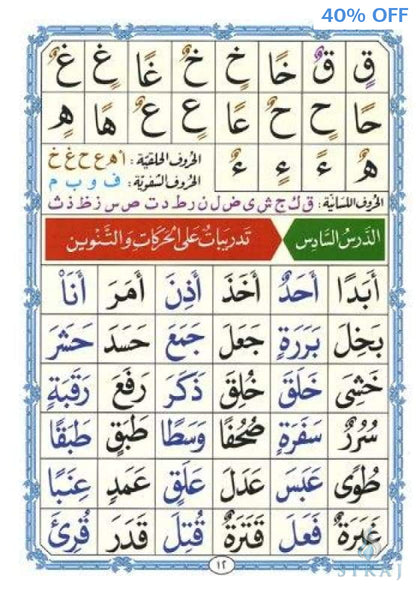 40% OFF
قٍ قٌ خًا خٍ خٌ غًا غٍ غٌ
حًا حٍ حٌ عًا عٍ عٌ هًا هٍ
هٌ ءً ءٍ ءٌ
الحُروف الحلقيّة : أ ه ع ح غ خ
الحُروف الشفويّة : ف و ب م
الحُروف اللسانيّة : ق ك ج ش ى ض ل ن ر ط د ت ص س ز ظ ذ ث
الدَرسُ السَّادِس
تَدريباتٌ عَلى الحَركَاتِ وَالتَّنْوين
أَبَدًا أَحَدٌ أَخَذَ أَذِنَ أَمَرَ أَنَاْ
بَخِلَ بَرَرَةٍ جَعَلَ جَمَعَ حَسَدَ حَشَرَ
خَشِىَ خَلَقَ خُلِقَ ذَكَرَ رَفَعَ رَقَبَةٍ
سُرُرٌ سَفَرَةٍ صُحُفًا وَسَطًا طَبَقٍ طَبَقًا
طُوًى عَبَسَ عَدَلَ عَلَقٍ عَمَدٍ عِنَبًا
غَبَرَةٌ فَعَلَ قَتَرَةٌ قُتِلَ قَدَرَ قُرِئَ
١٢
SIRAJ